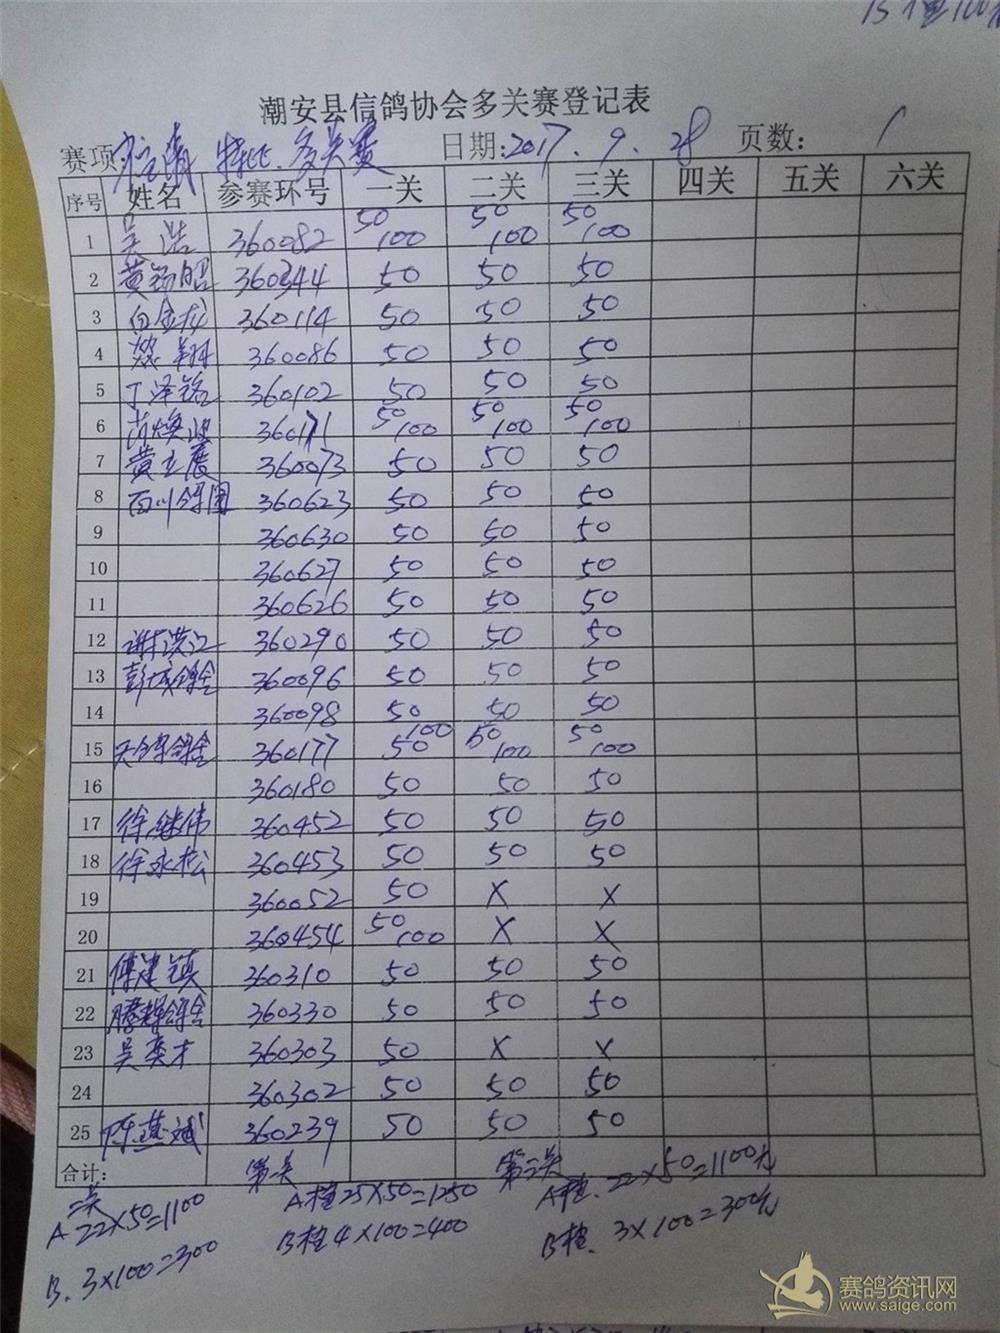 B 栏100元
潮安县信鸽协会多关赛登记表
赛项: 特比.多关赛 日期:2017.9.28 页数: 1
序号 姓名 参赛环号 一关 二关 三关 四关 五关 六关
1 吴浩 360082 50 100 50 100 50 100
2 黄锡昭 360344 50 50 50
3 白金龙 360114 50 50 50
4 翔 360086 50 50 50
5 丁泽铭 360102 50 50 50
6 360171 50 100 50 100 50 100
7 黄立展 360073 50 50 50
8 百川鸽园 360623 50 50 50
9 360630 50 50 50
10 360627 50 50 50
11 360626 50 50 50
12 谢洪江 360290 50 50 50
13 彭城鸽舍 360096 50 50 50
14 360098 50 50 50
15 天缘鸽舍 360177 50 100 50 100 50 100
16 360180 50 50 50
17 徐继伟 360452 50 50 50
18 徐永松 360453 50 50 50
19 360052 50 X X
20 360454 50 100 X X
21 傅建镇 360310 50 50 50
22 腾辉鸽舍 360330 50 50 50
23 吴奕才 360303 50 X X
24 360302 50 50 50
25 陈燕斌 360239 50 50 50
合计: 第一关 第三关
二关 A栏25×50=1250 A栏.22×50=1100元
A 22×50=1100 B栏4×100=400 B栏.3×100=300元
B.3×100=300
赛鸽资讯网
www.saige.com